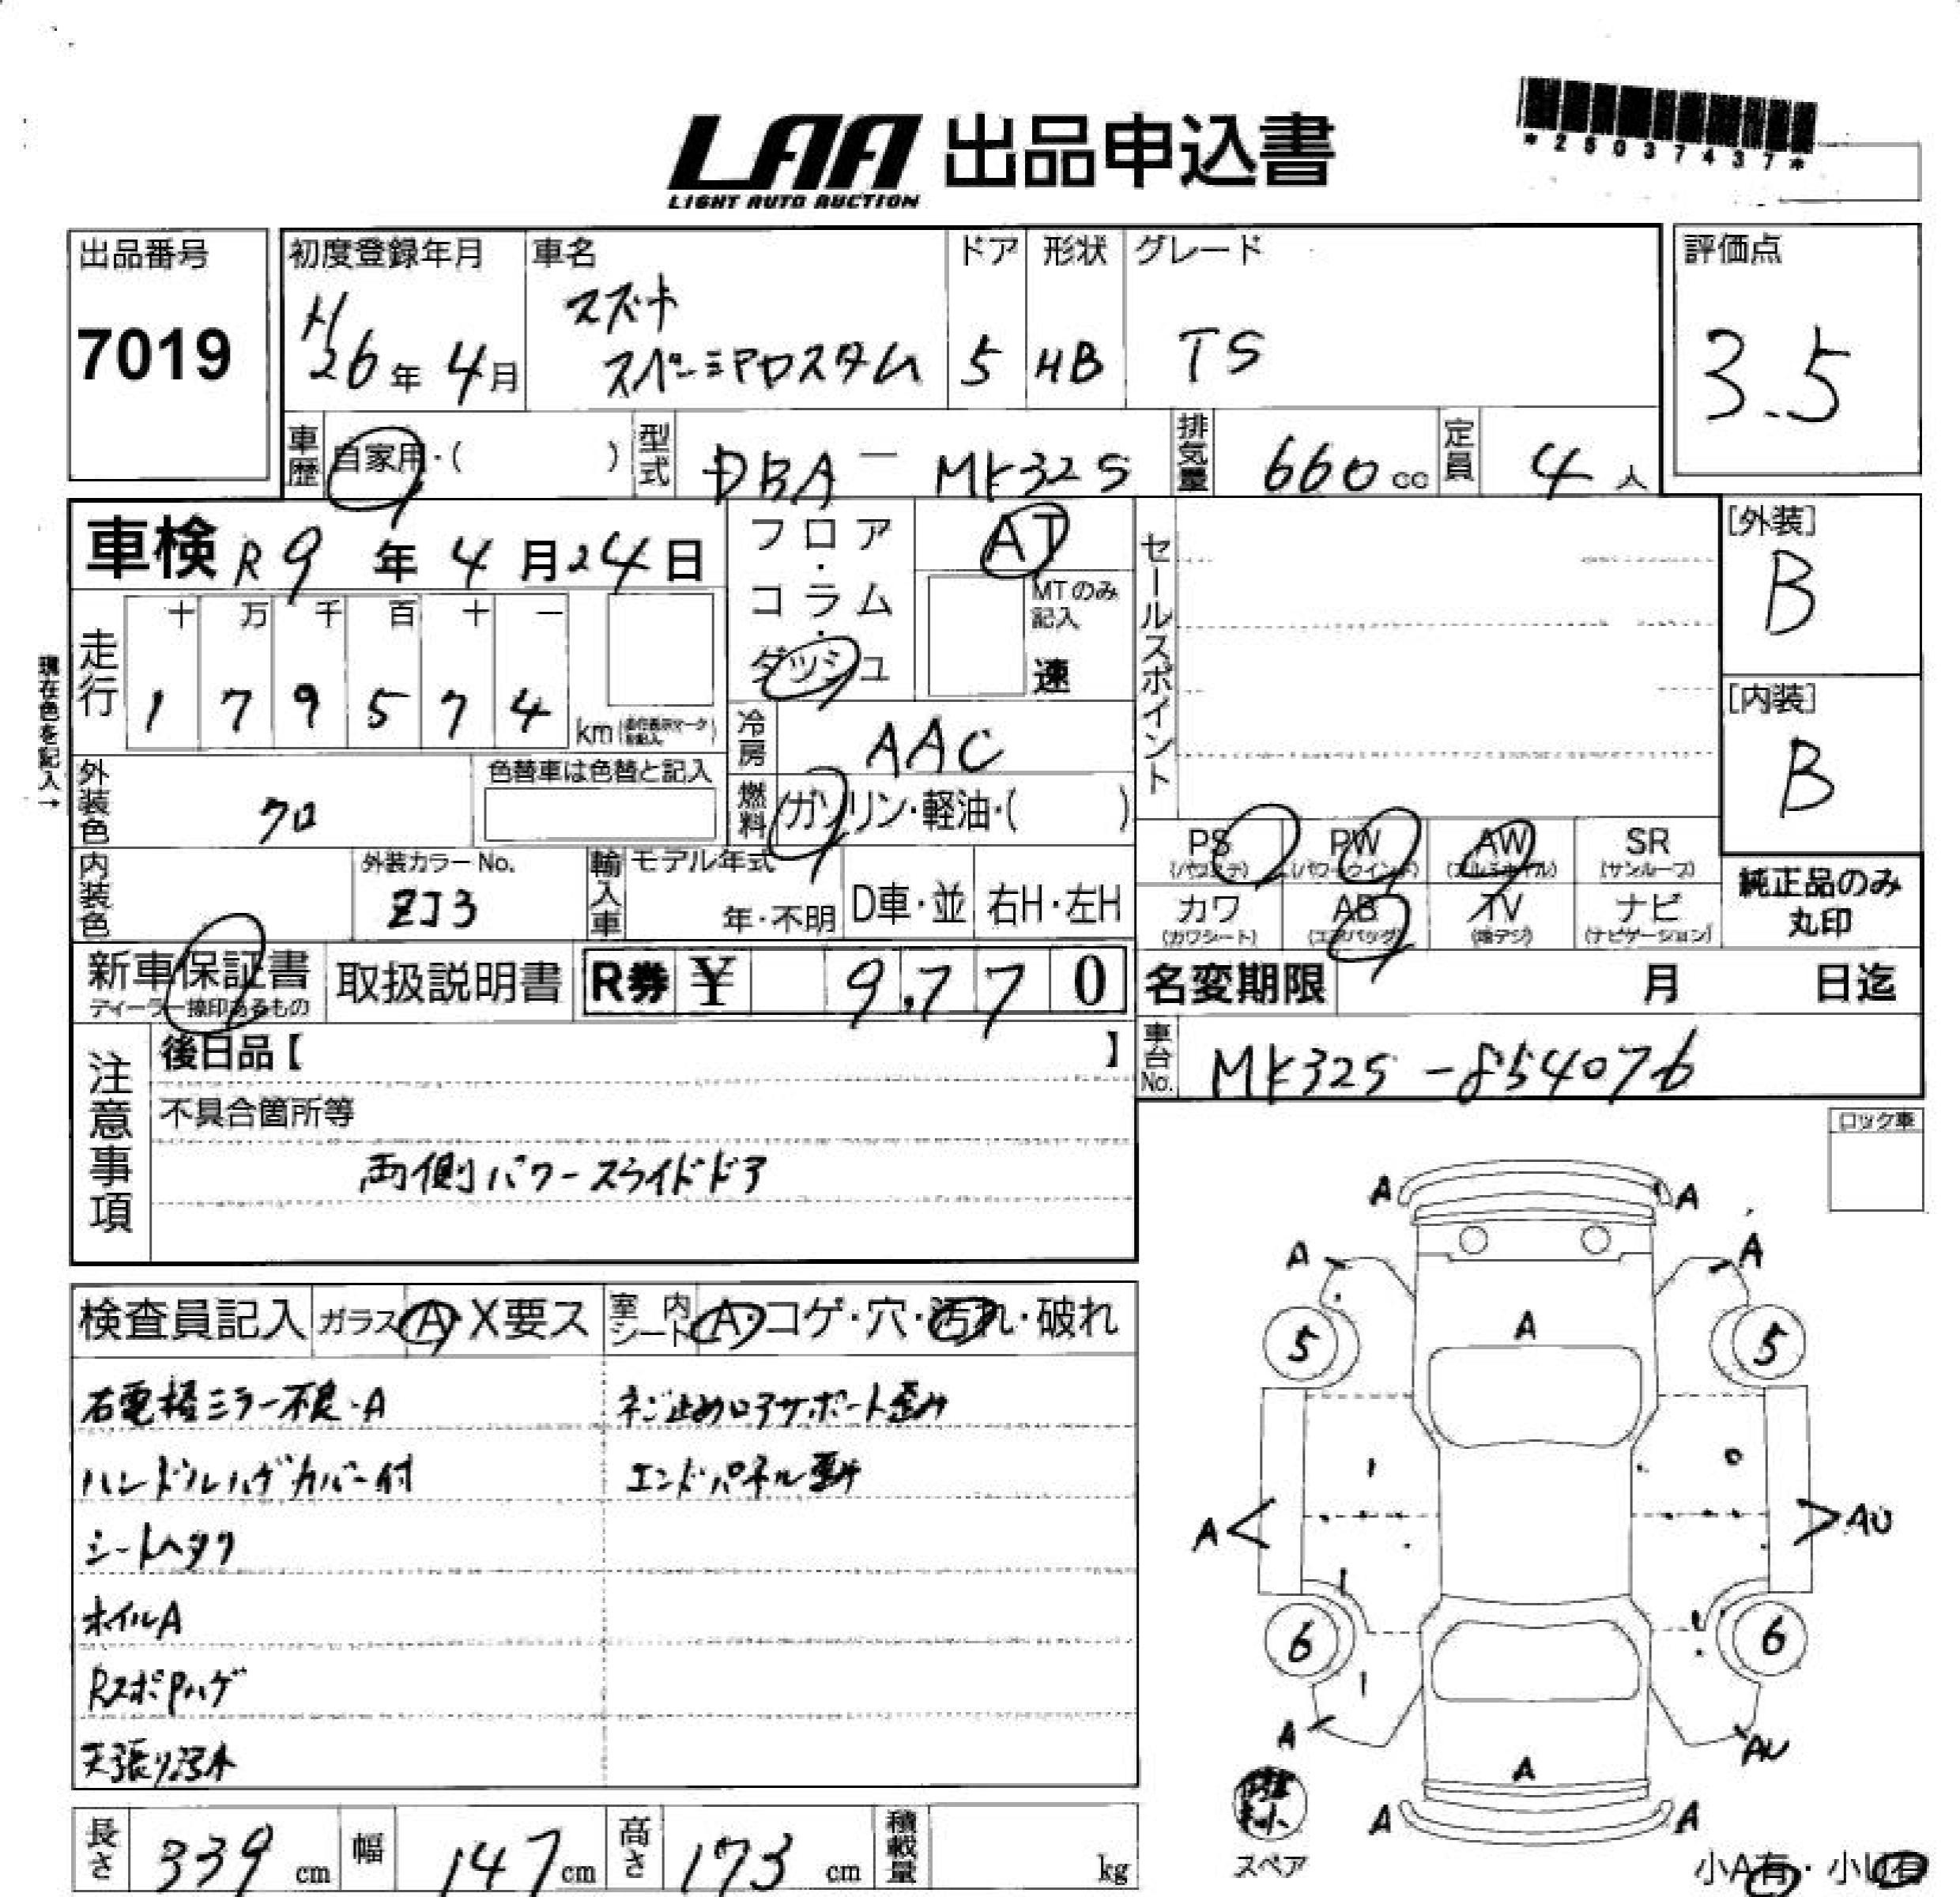 LAA 出品申込書
LIGHT AUTO AUCTION
*25037437*
出品番号
7019
初度登録年月
H26年4月
車名
スズキ
スペーシアカスタム
ドア
5
形状
HB
グレード
TS
評価点
3.5
車歴
自家用・( )
型式
DBA-MK32S
排気量
660cc
定員
4人
車検 R9年4月24日
フロア・コラム・ダッシュ
AT
MTのみ記入
速
セールスポイント
[外装]
B
[内装]
B
現在色を記入→
走行
十 万 千 百 十 一
1 7 9 5 7 4 km
冷房
AAC
外装色
クロ
色替車は色替と記入
燃料
ガソリン・軽油・( )
PS PW AW SR
(パワステ) (パワーウインド) (アルミホイル) (サンルーフ)
内装色
外装カラーNo.
ZJ3
輸入車
モデル年式
年・不明
D車・並
右H・左H
カワ AB TV ナビ
(カワシート) (エアバッグ) (地デジ) (ナビゲーション)
純正品のみ
丸印
新車保証書
ディーラー捺印あるもの
取扱説明書
R券 ¥ 9,770
名変期限 月 日迄
注意事項
後日品【 】
車台No.
MK32S-854076
不具合箇所等
両側パワースライドドア
ロック車
検査員記入
ガラス A・X要ス
室内シート A・コゲ・穴・汚れ・破れ
右電格ミラー不良・A
ネジ止めロアサポート歪み
ハンドルハゲカバー付
エンドパネル歪み
シートヘタリ
ホイルA
RスポPハゲ
天張り汚れ
A A
A A
5 A 5
A AU
6 6
A AU
A
A A
スペア
小A有・小U有
長さ 339cm
幅 147cm
高さ 173cm
積載量 kg